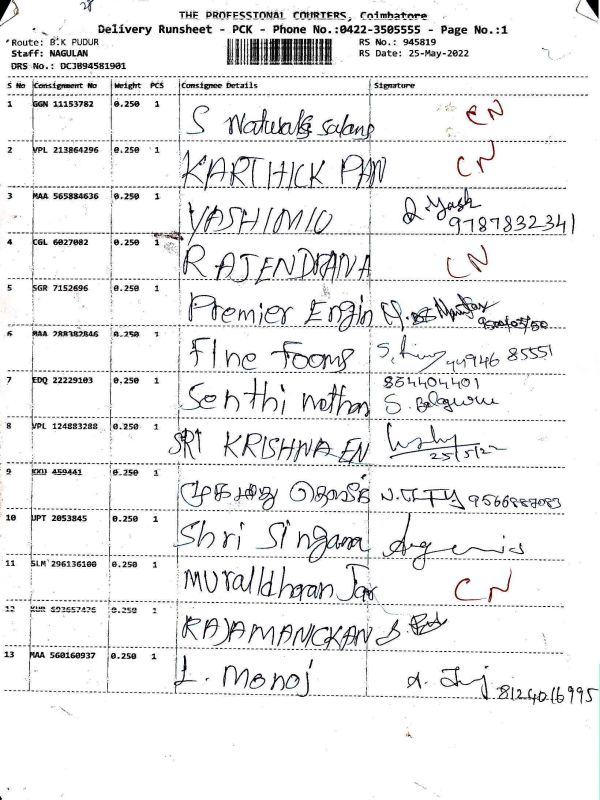 28
THE PROFESSIONAL COURIERS, Coimbatore
Delivery Runsheet - PCK - Phone No.:0422-3505555 - Page No.:1
Route: B.K PUDUR RS No.: 945819
Staff: NAGULAN RS Date: 25-May-2022
DRS No.: DCJB94581901
S No Consignment No Weight PCS Consignee Details Signature
1 GGN 11153782 0.250 1 S Naturals Salang CN
2 VPL 213864296 0.250 1 KARTHICK PAN CN
3 MAA 565884636 0.250 1 YASHIMIO R. Yash
9787832341
4 CGL 6027002 0.250 1 RAJENDRANA CN
5 SGR 7152696 0.250 1 Premier Engin
6 MAA 288382846 0.250 1 FIne Fooms 44946 85551
7 EDQ 22229103 0.250 1 Senthi nathan 884404401
S.
8 VPL 124883288 0.250 1 SRI KRISHNA EN
25/5/22
9 KKU 459441 0.250 1 N. 9566887083
10 UPT 2053845 0.250 1 Shri Singara
11 SLM 296136100 0.250 1 MUralldharan Jar CN
12 KUR 693657476 0.250 1 RAJAMANICKAN
13 MAA 560160937 0.250 1 L. Monoj 8124016995